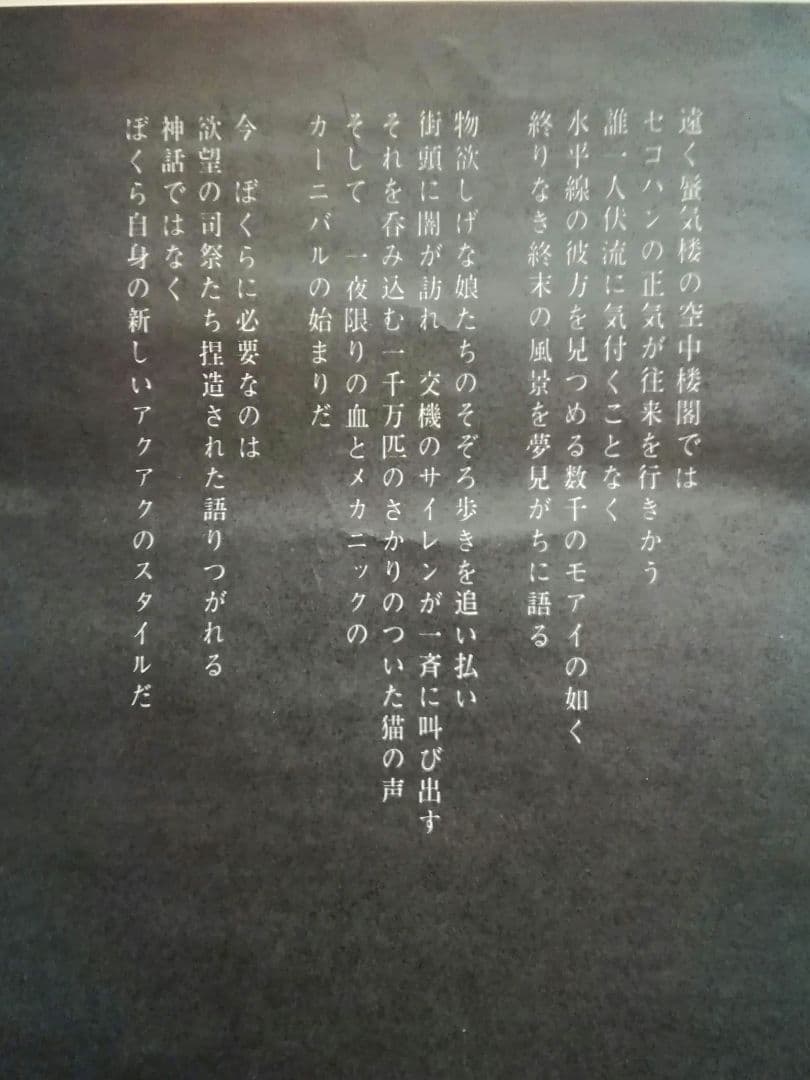 遠く蜃気楼の空中楼閣では
セコハンの正気が往来を行きかう
誰一人伏流に気付くことなく
水平線の彼方を見つめる数千のモアイの如く
終りなき終末の風景を夢見がちに語る
物欲しげな娘たちのそぞろ歩きを追い払い
街頭に闇が訪れ　交機のサイレンが一斉に叫び出す
それを呑み込む一千万匹のさかりのついた猫の声
そして　一夜限りの血とメカニックの
カーニバルの始まりだ
今　ぼくらに必要なのは
欲望の司祭たち捏造された語りつがれる
神話ではなく
ぼくら自身の新しいアクアクのスタイルだ